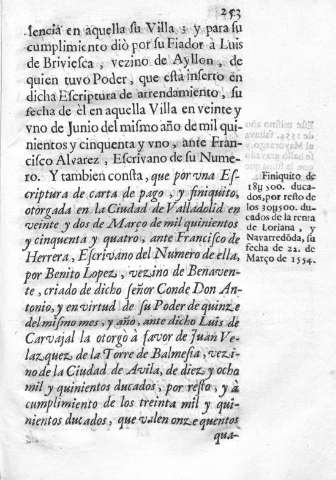 253
lencia en aquella su Villa; y para su
cumplimiento diò por su Fiador à Luis
de Briviesca, vezino de Ayllon, de
quien tuvo Poder, que està inserto en
dicha Escriptura de arrendamiento, su
fecha de èl en aquella Villa en veinte y
vno de Junio del mismo año de mil qui-
nientos y cinquenta y vno, ante Fran-
cisco Alvarez, Escrivano de su Nume-
ro. Y tambien consta, que por vna Es-
criptura de carta de pago, y finiquito,
otorgada en la Ciudad de Valladolid en
veinte y dos de Março de mil quinientos
y cinquenta y quatro, ante Francisco de
Herrera, Escrivano del Numero de ella,
por Benito Lopez, vezino de Benaven-
te, criado de dicho señor Conde Don An-
tonio, y en virtud de su Poder de quinze
del mismo mes, y año, ante dicho Luis de
Carvajal la otorgò à favor de Juan Ve-
lazquez de la Torre de Balmesia, vezi-
no de la Ciudad de Avila, de diez y ocho
mil y quinientos ducados, por resto, y à
cumplimiento de los treinta mil y qui-
nientos ducados, que valen onze quentos
qua-
Finiquito de
18U500. duca-
dos, por resto de
los 30U500. du-
cados de la renta
de Loriana, y
Navarredòda, su
fecha de 22. de
Março de 1554.